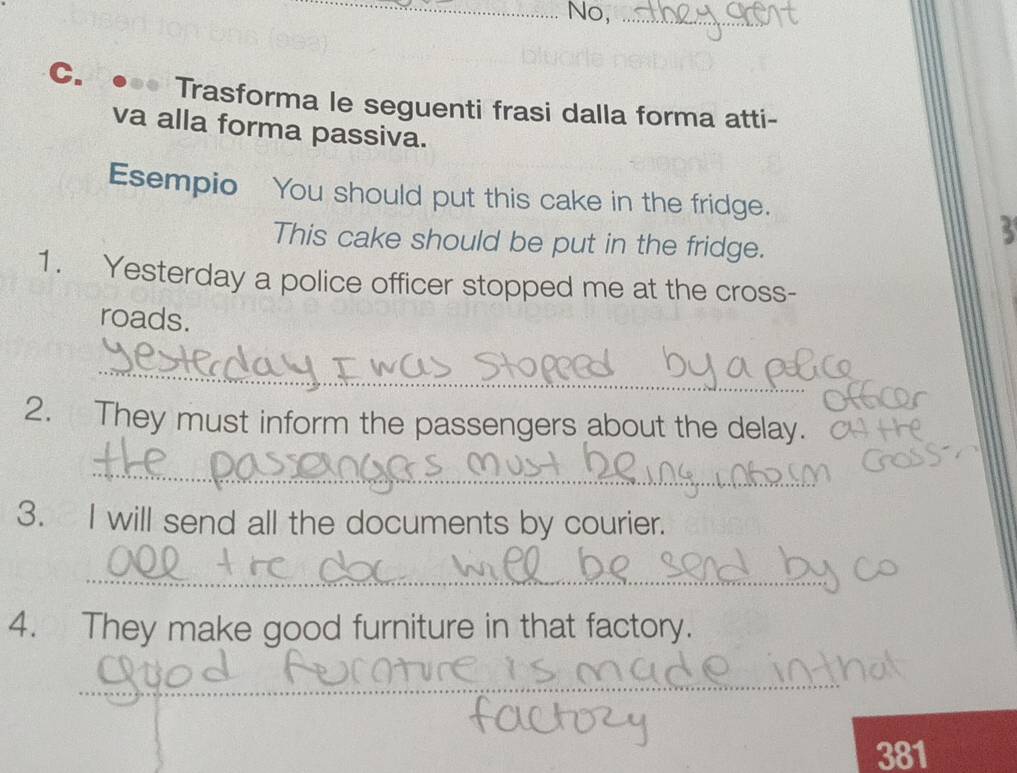 No, they arent
C. Trasforma le seguenti frasi dalla forma atti-
va alla forma passiva.
Esempio You should put this cake in the fridge.
This cake should be put in the fridge.
1. Yesterday a police officer stopped me at the cross-
roads.
yesterday I was stopped by a police
officer
2. They must inform the passengers about the delay. at the
the passangers must being inform cross-r
3. I will send all the documents by courier.
all tre doc will be send by co
4. They make good furniture in that factory.
good furature is made in that
factory
381